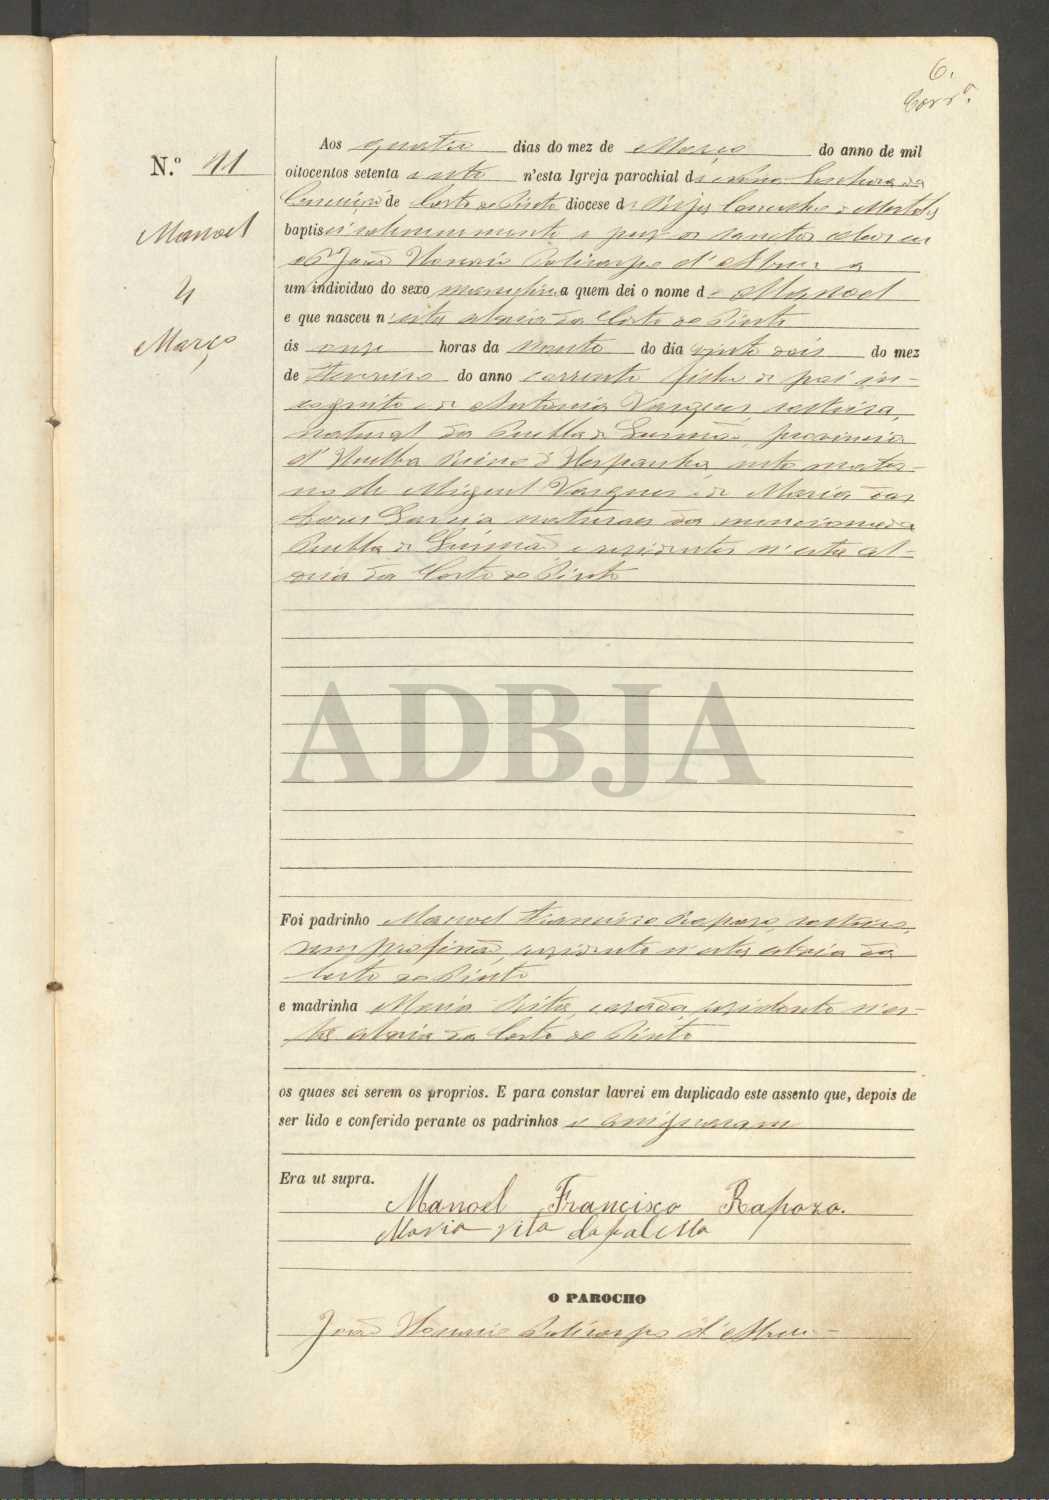 6.
N.º 11
Manoel
4
Março
Aos quatro dias do mez de Março do anno de mil
oitocentos setenta e oito n'esta Igreja parochial de Nossa Senhora da
Conceição de Corte do Pinto diocese de Beja, Concelho de Mertola
baptisei solemnemente e puz os sanctos oleos eu
o P.e João Honorio Policarpo d'Abreu a
um individuo do sexo masculino a quem dei o nome de Manoel
e que nasceu n'esta aldeia da Corte do Pinto
ás onze horas da noute do dia vinte dois do mez
de Fevereiro do anno corrente filho de pai in-
cognito e de Antonia Vasques, solteira,
natural da Puebla de Gusmão, provincia
d'Huelba Reino d'Hespanha, neto mater-
no de Miguel Vasques e de Maria das
Dores Garcia naturaes da mencionada
Puebla de Gusmão, e residentes n'esta al-
deia da Corte do Pinto
ADBJA
Foi padrinho Manoel Francisco Rapozo, solteiro,
sem profissão, residente n'esta aldeia da
Corte do Pinto
e madrinha Maria Rita, casada, residente n'es-
ta aldeia da Corte do Pinto
os quaes sei serem os proprios. E para constar lavrei em duplicado este assento que, depois de
ser lido e conferido perante os padrinhos o assignaram
Era ut supra.
Manoel Francisco Rapozo.
Maria rita
O PAROCHO
João Honorio Policarpo d'Abreu